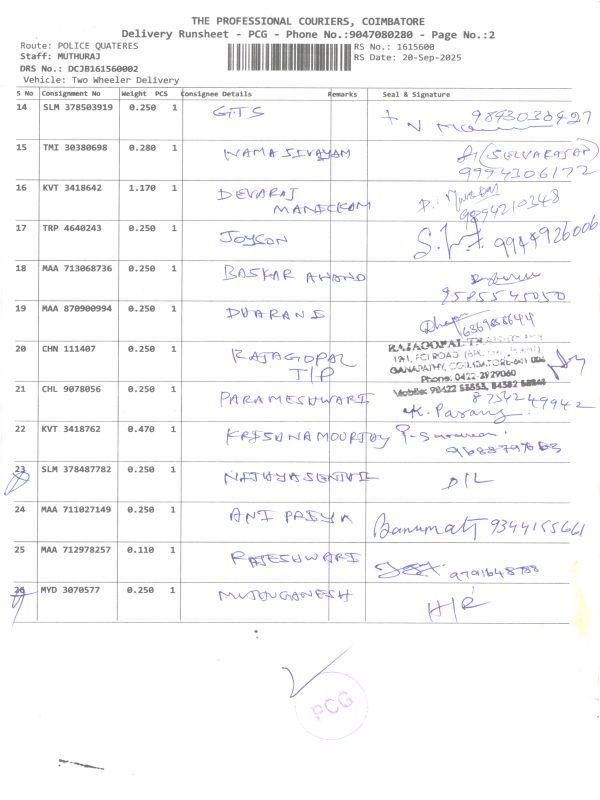 THE PROFESSIONAL COURIERS, COIMBATORE
Delivery Runsheet - PCG - Phone No.:9047080280 - Page No.:2
Route: POLICE QUATERES
RS No.: 1615600
Staff: MUTHURAJ
RS Date: 20-Sep-2025
DRS No.: DCJB161560002
Vehicle: Two Wheeler Delivery
S No Consignment No Weight PCS Consignee Details Remarks Seal & Signature
14 SLM 378503919 0.250 1 GTS
15 TMI 30380698 0.280 1 NAMASIVAYAM (SELVARAJAN)
9994306172
16 KVT 3418642 1.170 1 DEVARAJ
MANICKAM 9894210348
17 TRP 4640243 0.250 1 JOYSON
18 MAA 713068736 0.250 1 BASKAR ANAND
9585545050
19 MAA 870900994 0.250 1 DHARANI
20 CHN 111407 0.250 1 RAJAGOPAL
T/P
RAJAGOPAL
GANAPATHY, COIMBATORE-641 006
Phone: 0422-2929060
21 CHL 9078056 0.250 1 PARAMESHWARI 8754249942
22 KVT 3418762 0.470 1 KRISHNAMOORTHY
23 SLM 378487782 0.250 1 NITHYASENTHIL D/L
24 MAA 711027149 0.250 1 ANI PRIYA Banumati 9344155661
25 MAA 712978257 0.110 1 RAJESHWARI
26 MYD 3070577 0.250 1 MUTHUGANESH H/R
PCG